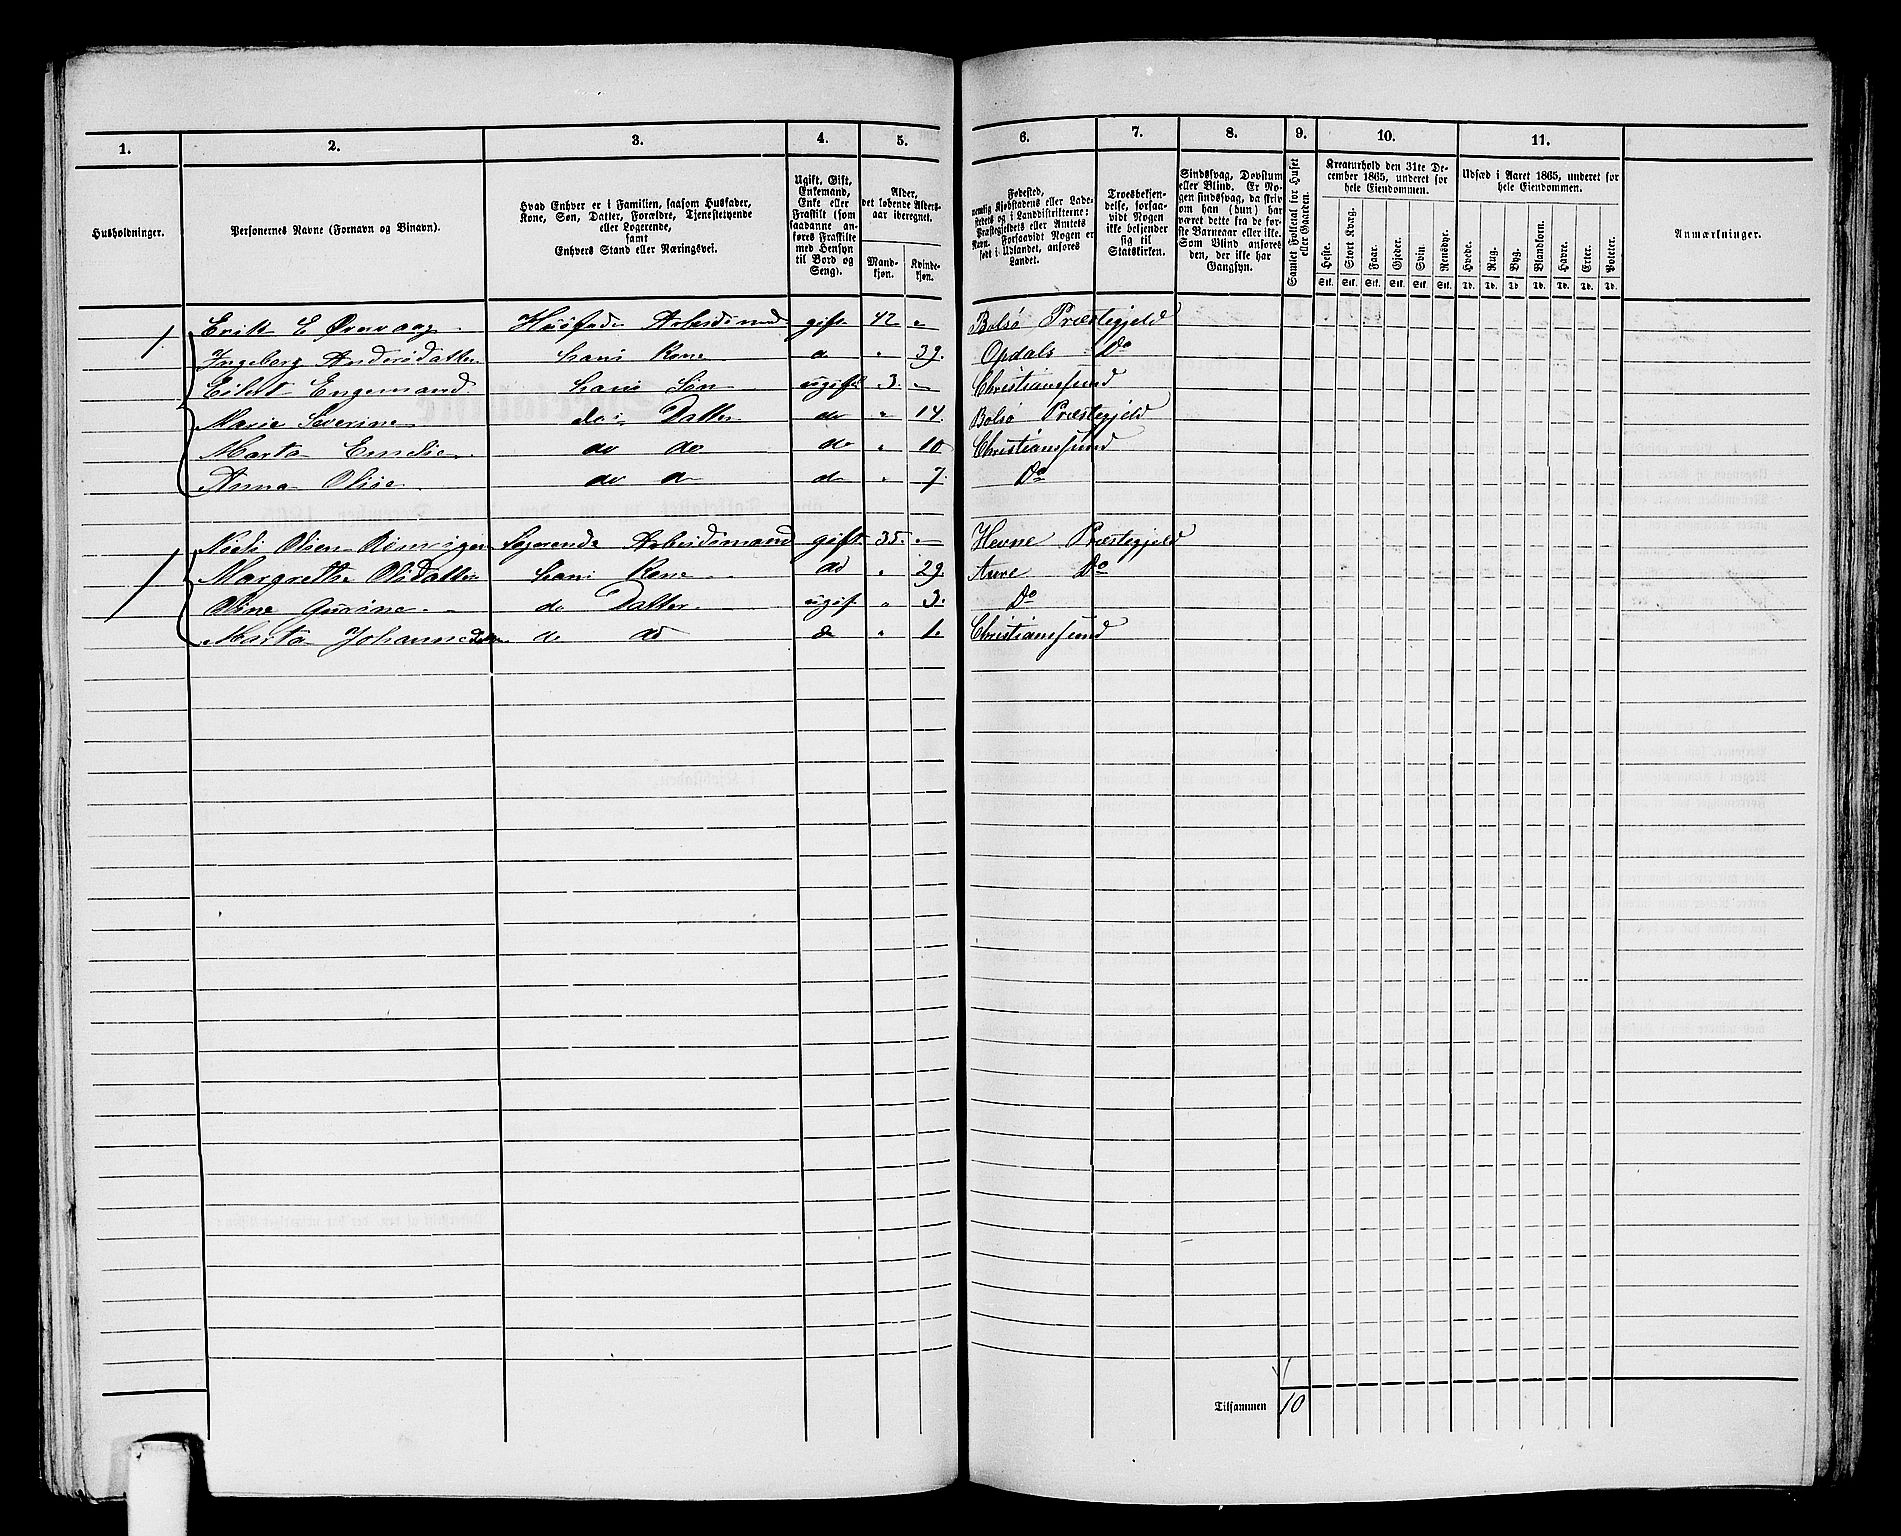 1. 2. 3. 4. 5. 6. 7. 8. 9. 10. 11.
Husholdninger.
Personernes Navne (Fornavn og Binavn).
Hvad Enhver er i Familien, saasom Husfader,
Kone, Søn, Datter, Forældre, Tjenestetyende
eller Logerende,
samt
Enhvers Stand eller Næringsvei.
Ugift, Gift,
Enkemand,
Enke eller
Fraskilt (som
saadanne an-
føres Fraskilte
med Hensyn
til Bord og
Seng).
Alder,
det løbende Alders-
aar iberegnet.
Mand-
kjøn.
Kvinde-
kjøn.
Fødested,
nemlig Kjøbstadens eller Lade-
stedets og i Landdistrikterne:
Præstegjeldets eller Amtets
Navn. Forsaavidt Nogen er
født i Udlandet, anføres
Landet.
Troesbekjen-
delse, forsaa-
vidt Nogen
ikke bekjender
sig til
Statskirken.
Sindssvag, Døvstum
eller Blind. Er No-
gen sindssvag, da skriv
om han (hun) har
været dette fra de før-
ste Barneaar eller ikke.
Som Blind anføres
den, der ikke har
Gangsyn.
Samlet Folketal for Huset
eller Gaarden.
Kreaturhold den 31te De-
cember 1865, underet for
hele Eiendommen.
Heste. Stort Kvæg. Faar. Gjeder. Svin. Rensdyr.
Stk. Stk. Stk. Stk. Stk. Stk.
Udsæd i Aaret 1865, underet for
hele Eiendommen.
Hvede. Rug. Byg. Blandkorn. Havre. Erter. Poteter.
Td. Td. Td. Td. Td. Td. Td.
Anmærkninger.
1 Erik E Husfader Arbeidsmd gift 42 " Bolsø Præstegjeld
Ingeborg Andersdatter hans Kone " 39. Opdals Do
Eilert Engemand hans Søn ugift 3. Christianssund
Marie Severine do Datter do " 14. Bolsø Præstegjeld
Marta Emelie do do do " 10 Christianssund
Anna Olise do do do " 7. Do
1 Niels Olsen Logerende Arbeidsmand gift 35. Hevne Præstegjeld
Margrethe Olsdatter hans Kone do " 29. Aure Do
Oline Gurine do Datter ugif. " 3. Do
Marta Johanne do do do " 1. Christianssund
Tilsammen 10